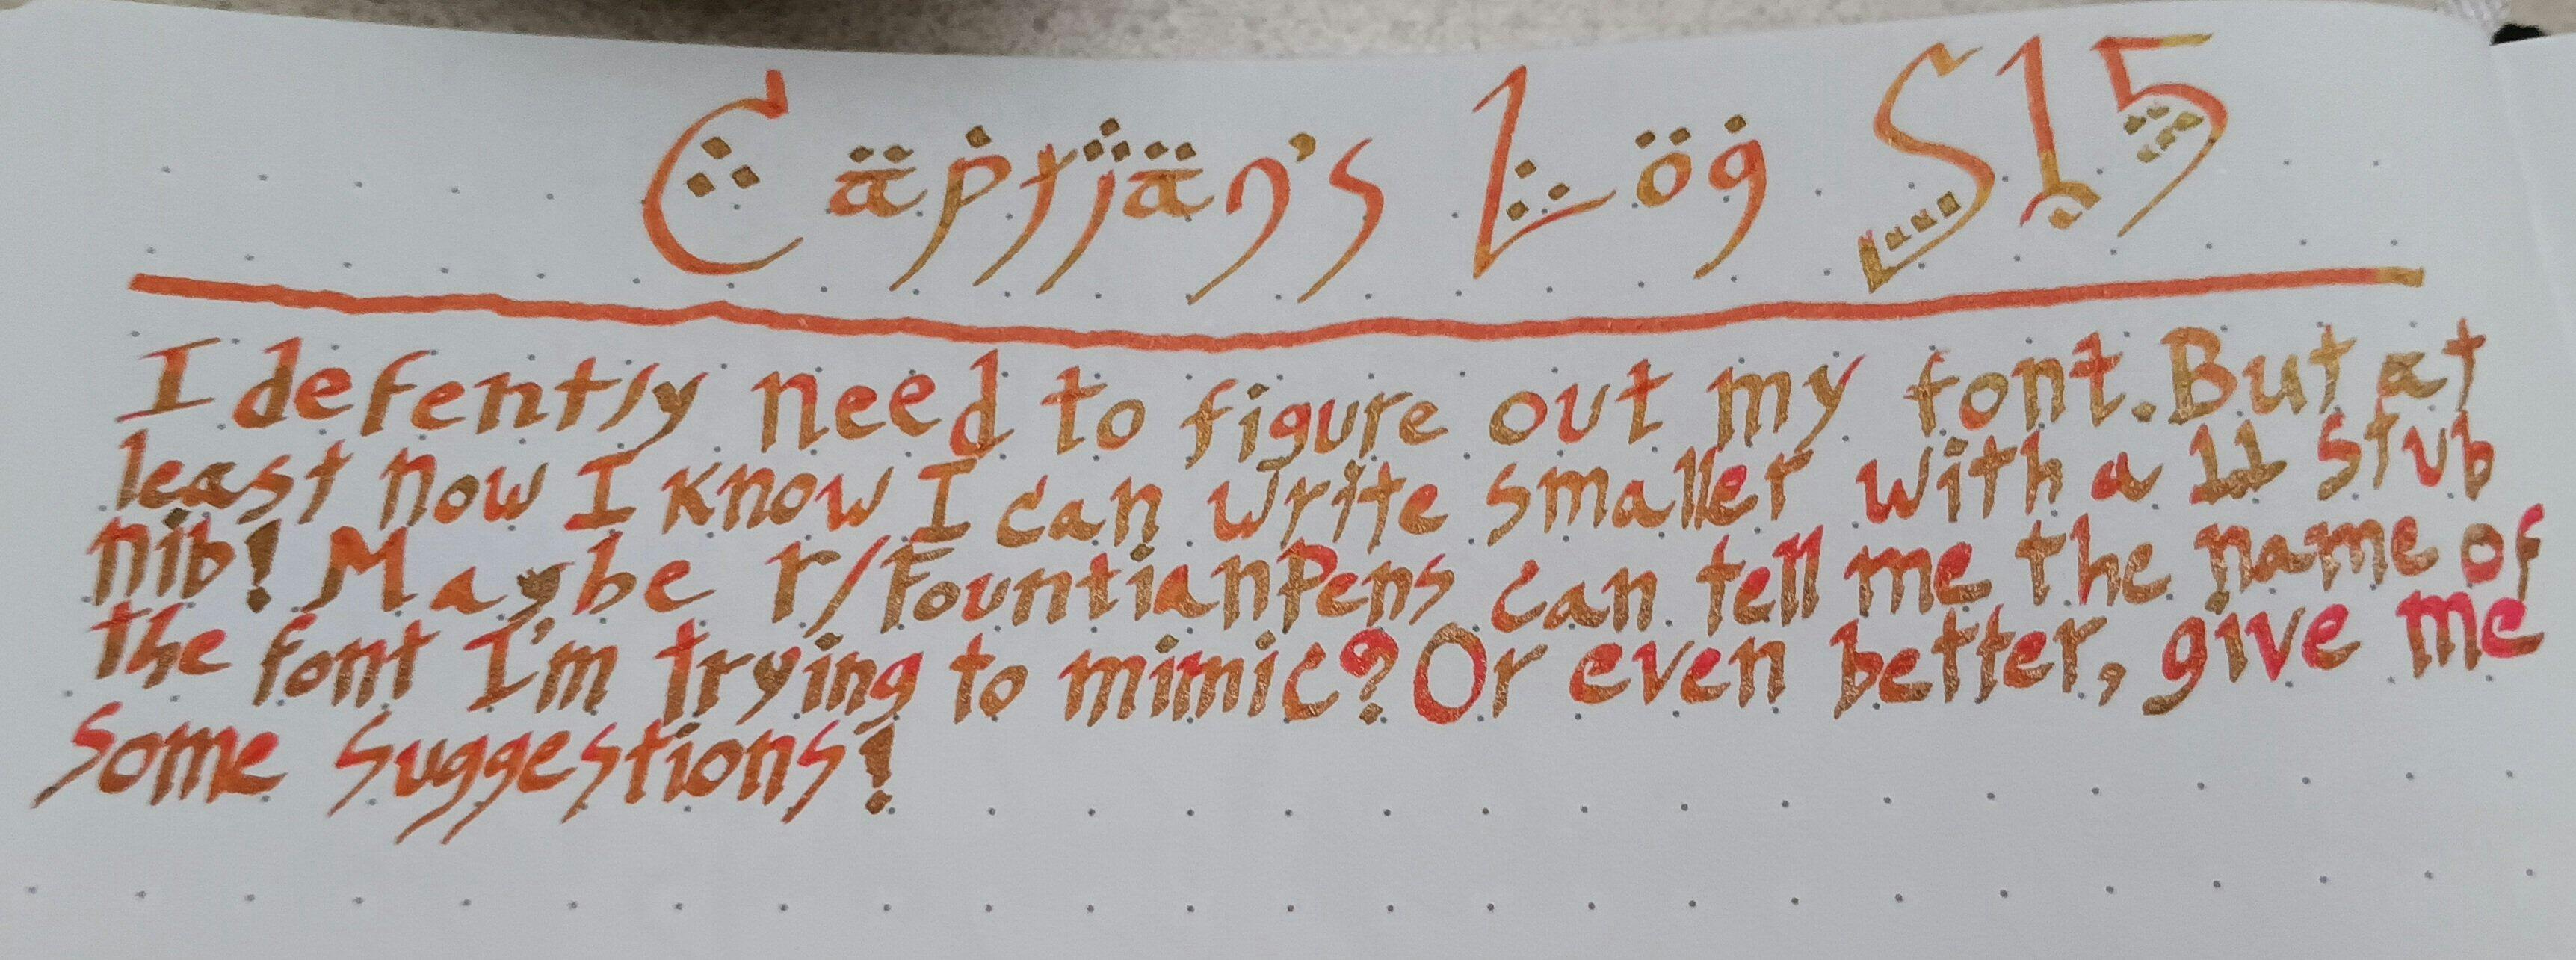 Captian's Log S15
I defently need to figure out my font. But at
least now I know I can write smaller with a 11 stub
nib! Maybe r/FountianPens can tell me the name of
the font I'm trying to mimic? Or even better, give me
some suggestions!